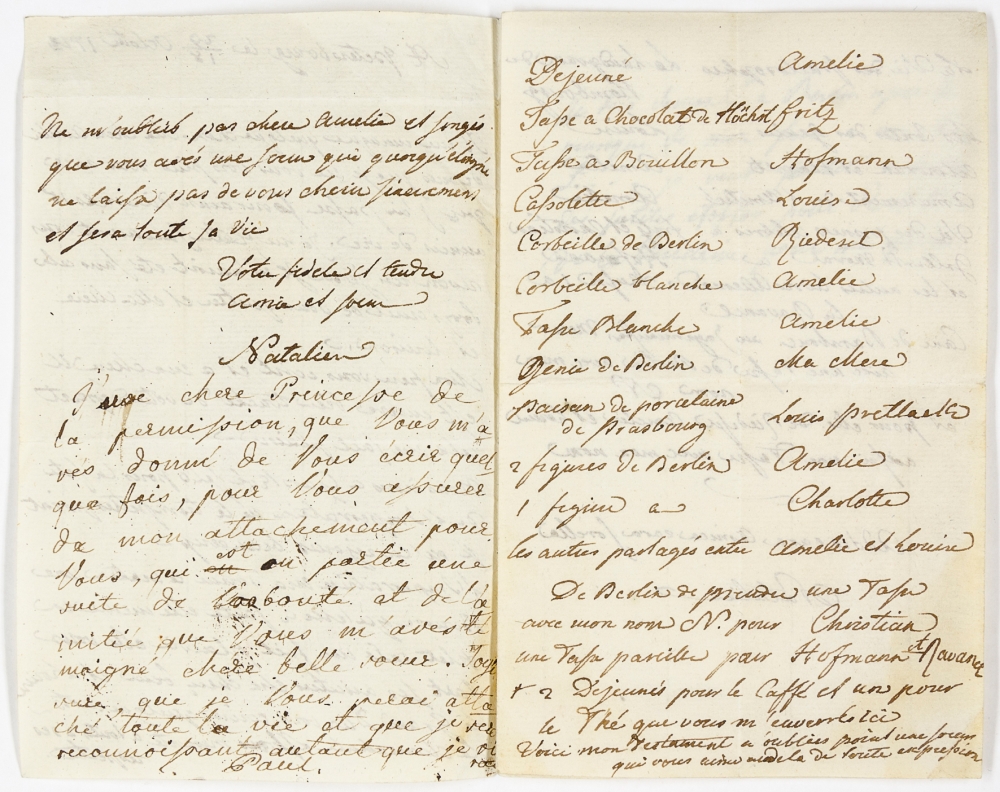 Ne m'oublies pas chere Amelie et songés
que vous avés une soeur qui quoiqu'éloignée
ne laisse pas de vous cherir sincerement
et sera toute sa vie
Votre fidele et tendre
Amie et soeur
Natalien
J'use chere Princesse de
la permission, que Vous m'a
vés donné de Vous écrir quel
que fois, pour Vous assurer
de mon attachement pour
Vous, qui est en partie une
suite de bonté et de l'a
mitié que Vous m'avés té
moigné chere belle soeur. Soyé
sure, que je Vous serai atta
ché toute la vie et que je serai
reconnoissant autant que je vi
Paul.
Dejeuné Amelie
Tasse a Chocolat de Höchst fritz
Tasse a Bouillon Hofmann
Cassolette Louise
Corbeille de Berlin Riedesel
Corbeille blanche Amelie
Tasse Blanche Amelie
Genie de Berlin Ma Mere
de porcelaine
de Strasbourg Louis Pretlack
2 figures de Berlin Amelie
1 figure a Charlotte
les autres partagés entre Amelie et Louise
De Berlin de prendre une Tasse
avec mon nom N. pour Christian
une Tasse pareille pour Hofmann et Ravanel
+ 2 Dejeunés pour le Caffé et un pour
le Thé que vous m'enverrés ici
Voici mon Testament n'oubliés point une soeur
qui vous aime au dela de toute expression